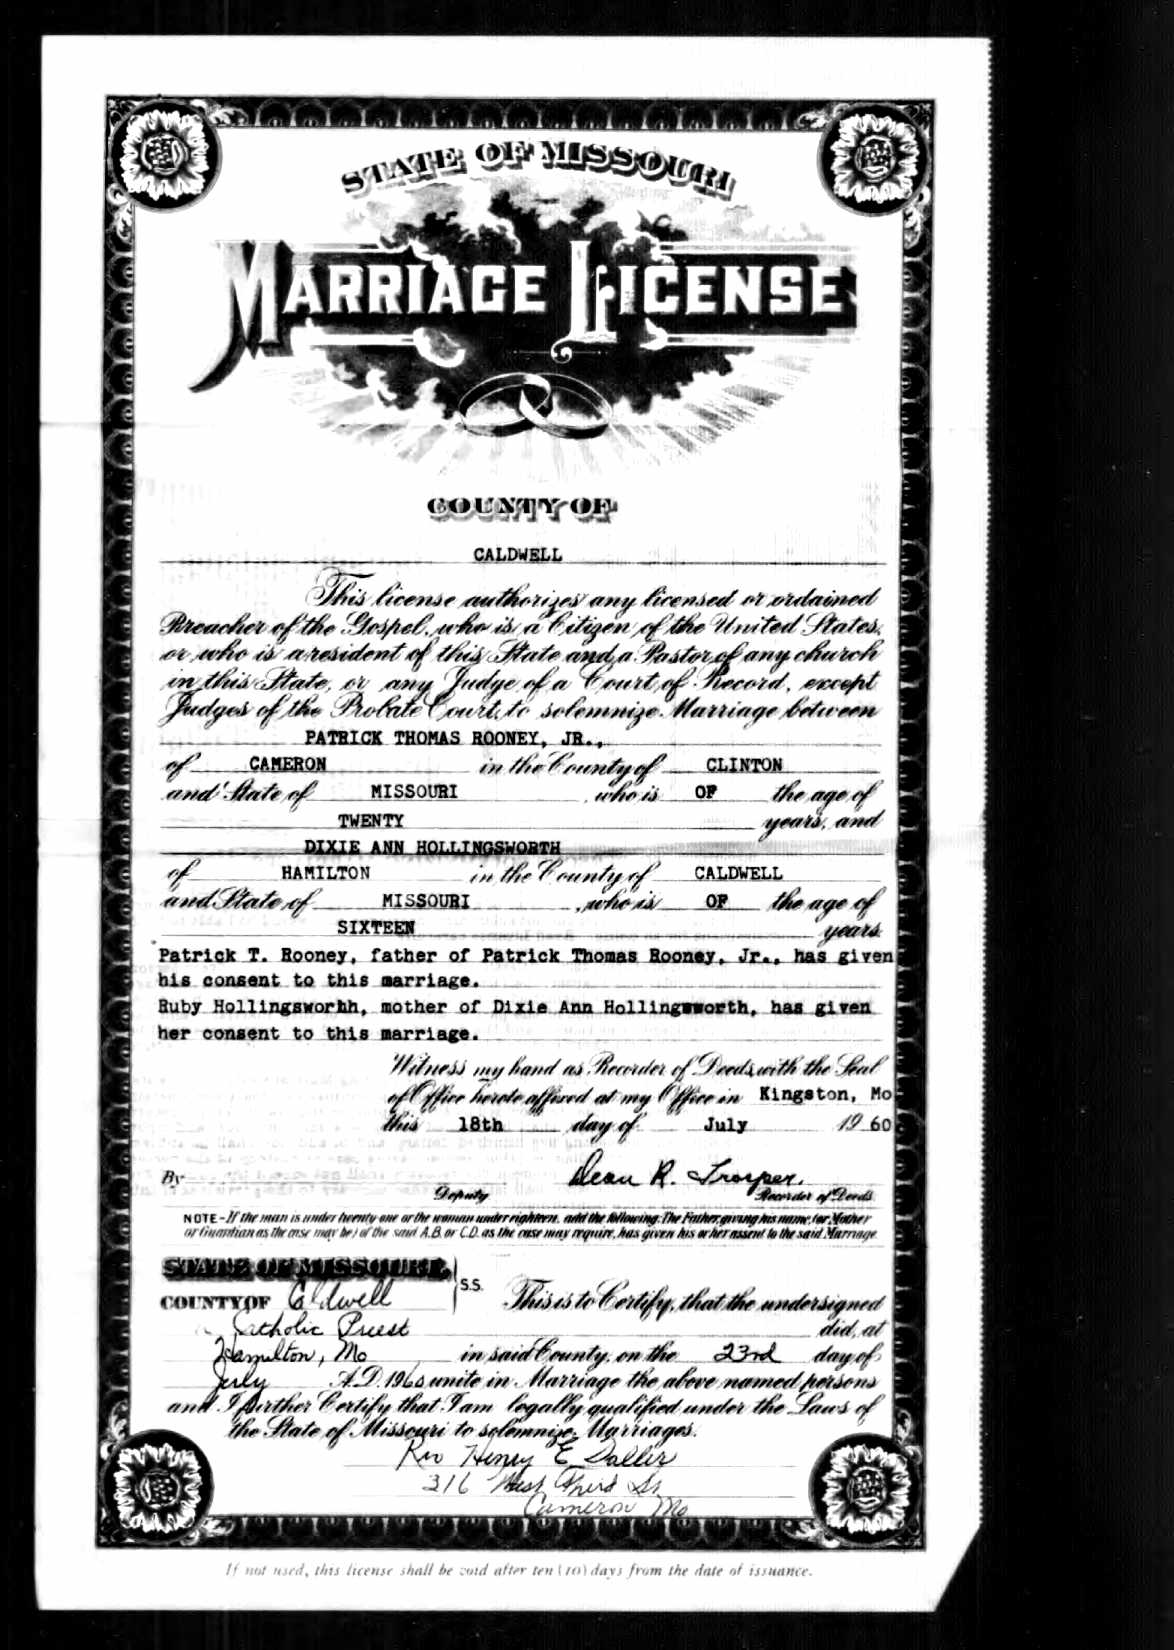 STATE OF MISSOURI
MARRIAGE LICENSE
COUNTY OF
CALDWELL
This license authorizes any licensed or ordained
Preacher of the Gospel, who is a Citizen of the United States,
or who is a resident of this State and a Pastor of any church
in this State, or any Judge of a Court of Record, except
Judges of the Probate Court, to solemnize Marriage between
PATRICK THOMAS ROONEY, JR.,
of CAMERON in the County of CLINTON
and State of MISSOURI, who is OF the age of
TWENTY years, and
DIXIE ANN HOLLINGSWORTH
of HAMILTON in the County of CALDWELL
and State of MISSOURI, who is OF the age of
SIXTEEN years.
Patrick T. Rooney, father of Patrick Thomas Rooney, Jr., has given
his consent to this marriage.
Ruby Hollingsworhh, mother of Dixie Ann Hollingsworth, has given
her consent to this marriage.
Witness my hand as Recorder of Deeds, with the Seal
of Office hereto affixed at my Office in Kingston, Mo
this 18th day of July 1960
By Dean R. Trosper.
Deputy Recorder of Deeds
NOTE-If the man is under twenty-one or the woman under eighteen, add the following: The Father, giving his name, (or Mother
or Guardian as the case may be) of the said A.B. or C.D. as the case may require, has given his or her assent to the said Marriage.
STATE OF MISSOURI,
COUNTY OF Caldwell S.S. This is to Certify, that the undersigned
Catholic Priest did, at
Hamilton, Mo in said County, on the 23rd day of
July A.D. 1960 unite in Marriage the above named persons
and I further Certify that I am legally qualified under the Laws of
the State of Missouri to solemnize Marriages.
Rev Henry E Saller
316 West Third St
Cameron Mo
If not used, this license shall be void after ten (10) days from the date of issuance.